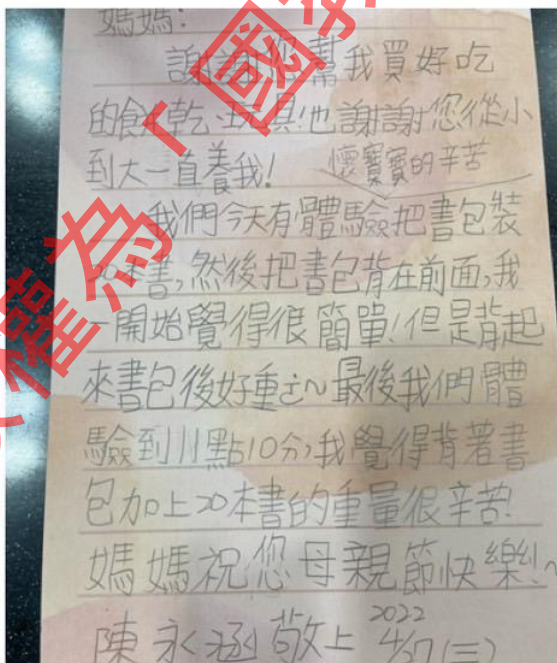 媽媽:
謝謝您幫我買好吃
的餅乾、玩具!也謝謝您從小
到大一直養我!
懷寶寶的辛苦
我們今天有體驗把書包裝
20本書,然後把書包背在前面,我
一開始覺得很簡單!但是背起
來書包後好重ㄛ~最後我們體
驗到11點10分,我覺得背著書
包加上20本書的重量很辛苦!
媽媽祝您母親節快樂!~
陳永涵敬上 2022 4/27(三)
權為「國